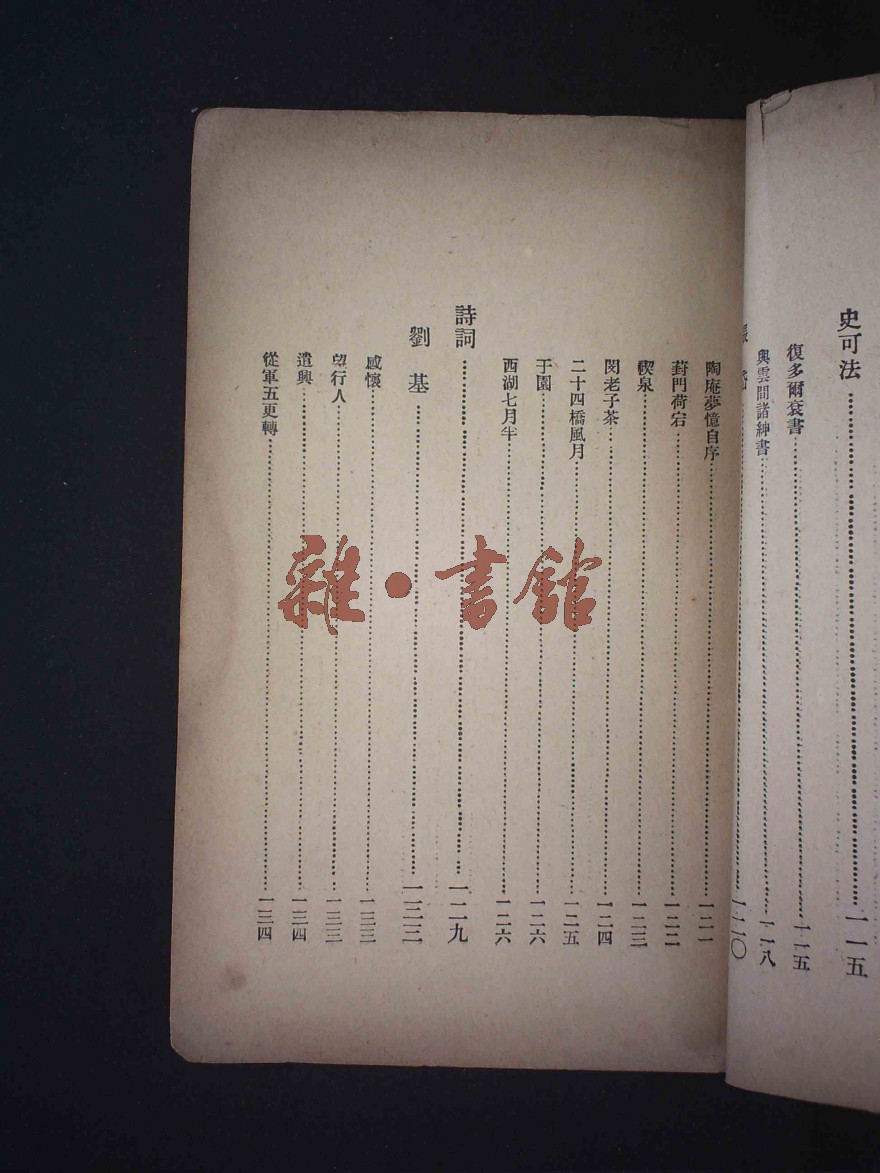 史可法……一一五
復多爾袞書……一一五
與雲間諸紳書……一一八
……一二〇
陶庵夢憶自序……一二一
葑門荷宕……一二二
禊泉……一二三
閔老子茶……一二四
二十四橋風月……一二五
于園……一二六
西湖七月半……一二六
詩詞……一二九
劉基……一三三
感懷……一三三
望行人……一三三
遣興……一三四
從軍五更轉……一三四
雜·書館